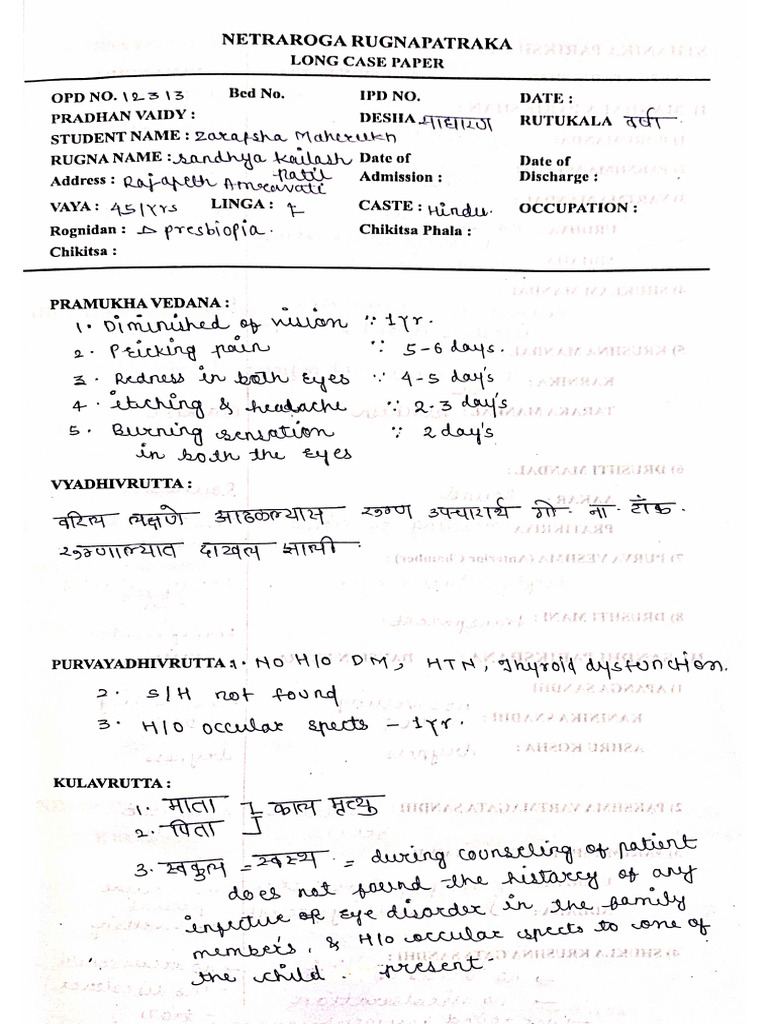 NETRAROGA RUGNAPATRAKA
LONG CASE PAPER
OPD NO. 12313 Bed No. IPD NO. DATE :
PRADHAN VAIDY : DESHA साधारण RUTUKALA वर्षा
STUDENT NAME : Zarafsha Maherukh
RUGNA NAME : Sandhya Kailash Patil Date of Admission : Date of Discharge :
Address : Rajapeth Amravati
VAYA : 45/Yrs LINGA : F CASTE : Hindu. OCCUPATION :
Rognidan : Δ Presbiopia. Chikitsa Phala :
Chikitsa :
PRAMUKHA VEDANA :
1. Diminished of vision ∵ 1yr.
2. Pricking pain ∵ 5-6 days.
3. Redness in both Eyes ∵ 4-5 day's
4. itching & headache ∵ 2-3 day's
5. Burning sensation ∵ 2 day's
in both the Eyes
VYADHIVRUTTA :
वरिल लक्षणे आढळल्यास रुग्ण उपचारार्थ गो. ना. टोंक.
रुग्णालयात दाखल झाली.
PURVAYADHIVRUTTA : 1. NO H/O DM, HTN, Thyroid dysfunction.
2. S/H not found
3. H/O occular spects - 1yr.
KULAVRUTTA :
1. माता ] काल मृत्यु
2. पिता ]
3. स्वकुल = स्वस्थ = during counseling of patient
does not found the historry of any
infective or Eye disorder in the family
member's, & H/O occular spects to one of
the child. present.